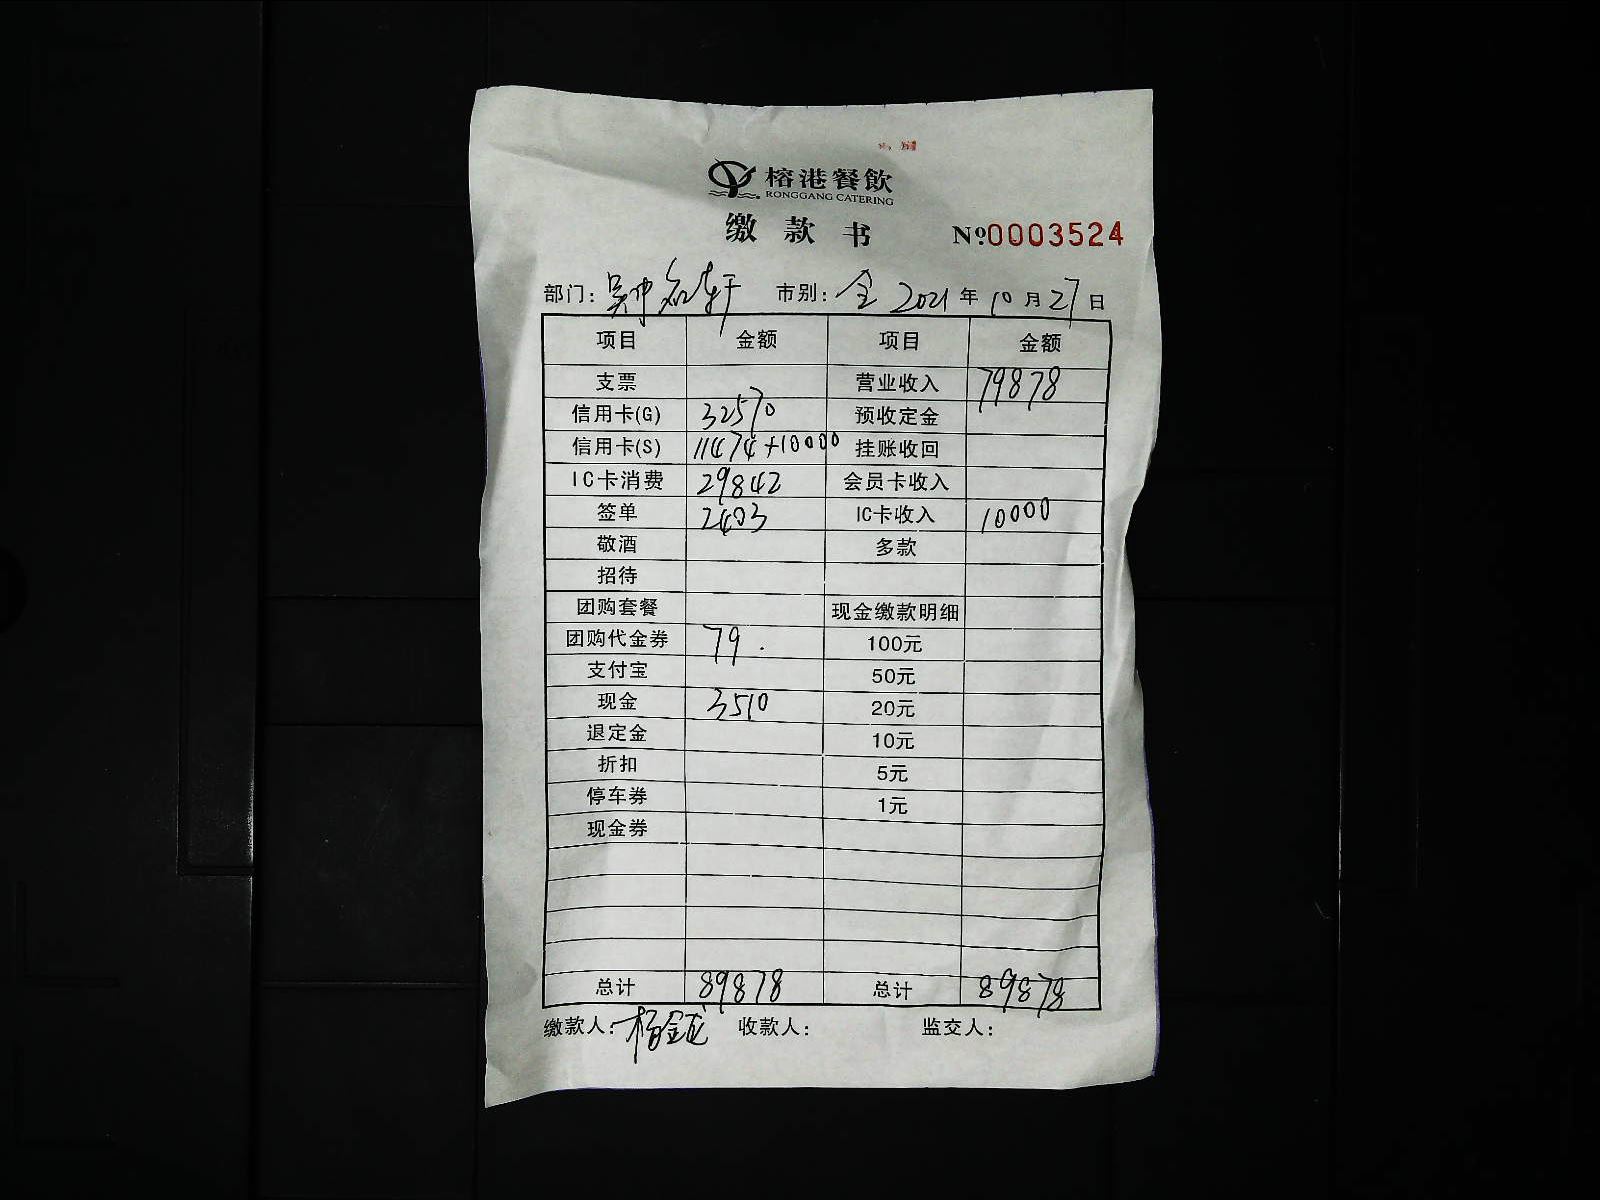 榕港餐飲
RONGGANG CATERING
缴款书 Nº0003524
部门: 吴中名轩 市别: 全 2021年10月27日
项目 金额 项目 金额
支票 营业收入 79878
信用卡(G) 32570 预收定金
信用卡(S) 11474+10000 挂账收回
IC卡消费 29842 会员卡收入
签单 2403 IC卡收入 10000
敬酒 多款
招待
团购套餐 现金缴款明细
团购代金券 79. 100元
支付宝 50元
现金 3510 20元
退定金 10元
折扣 5元
停车券 1元
现金券
总计 89878 总计 89878
缴款人: 收款人: 监交人: